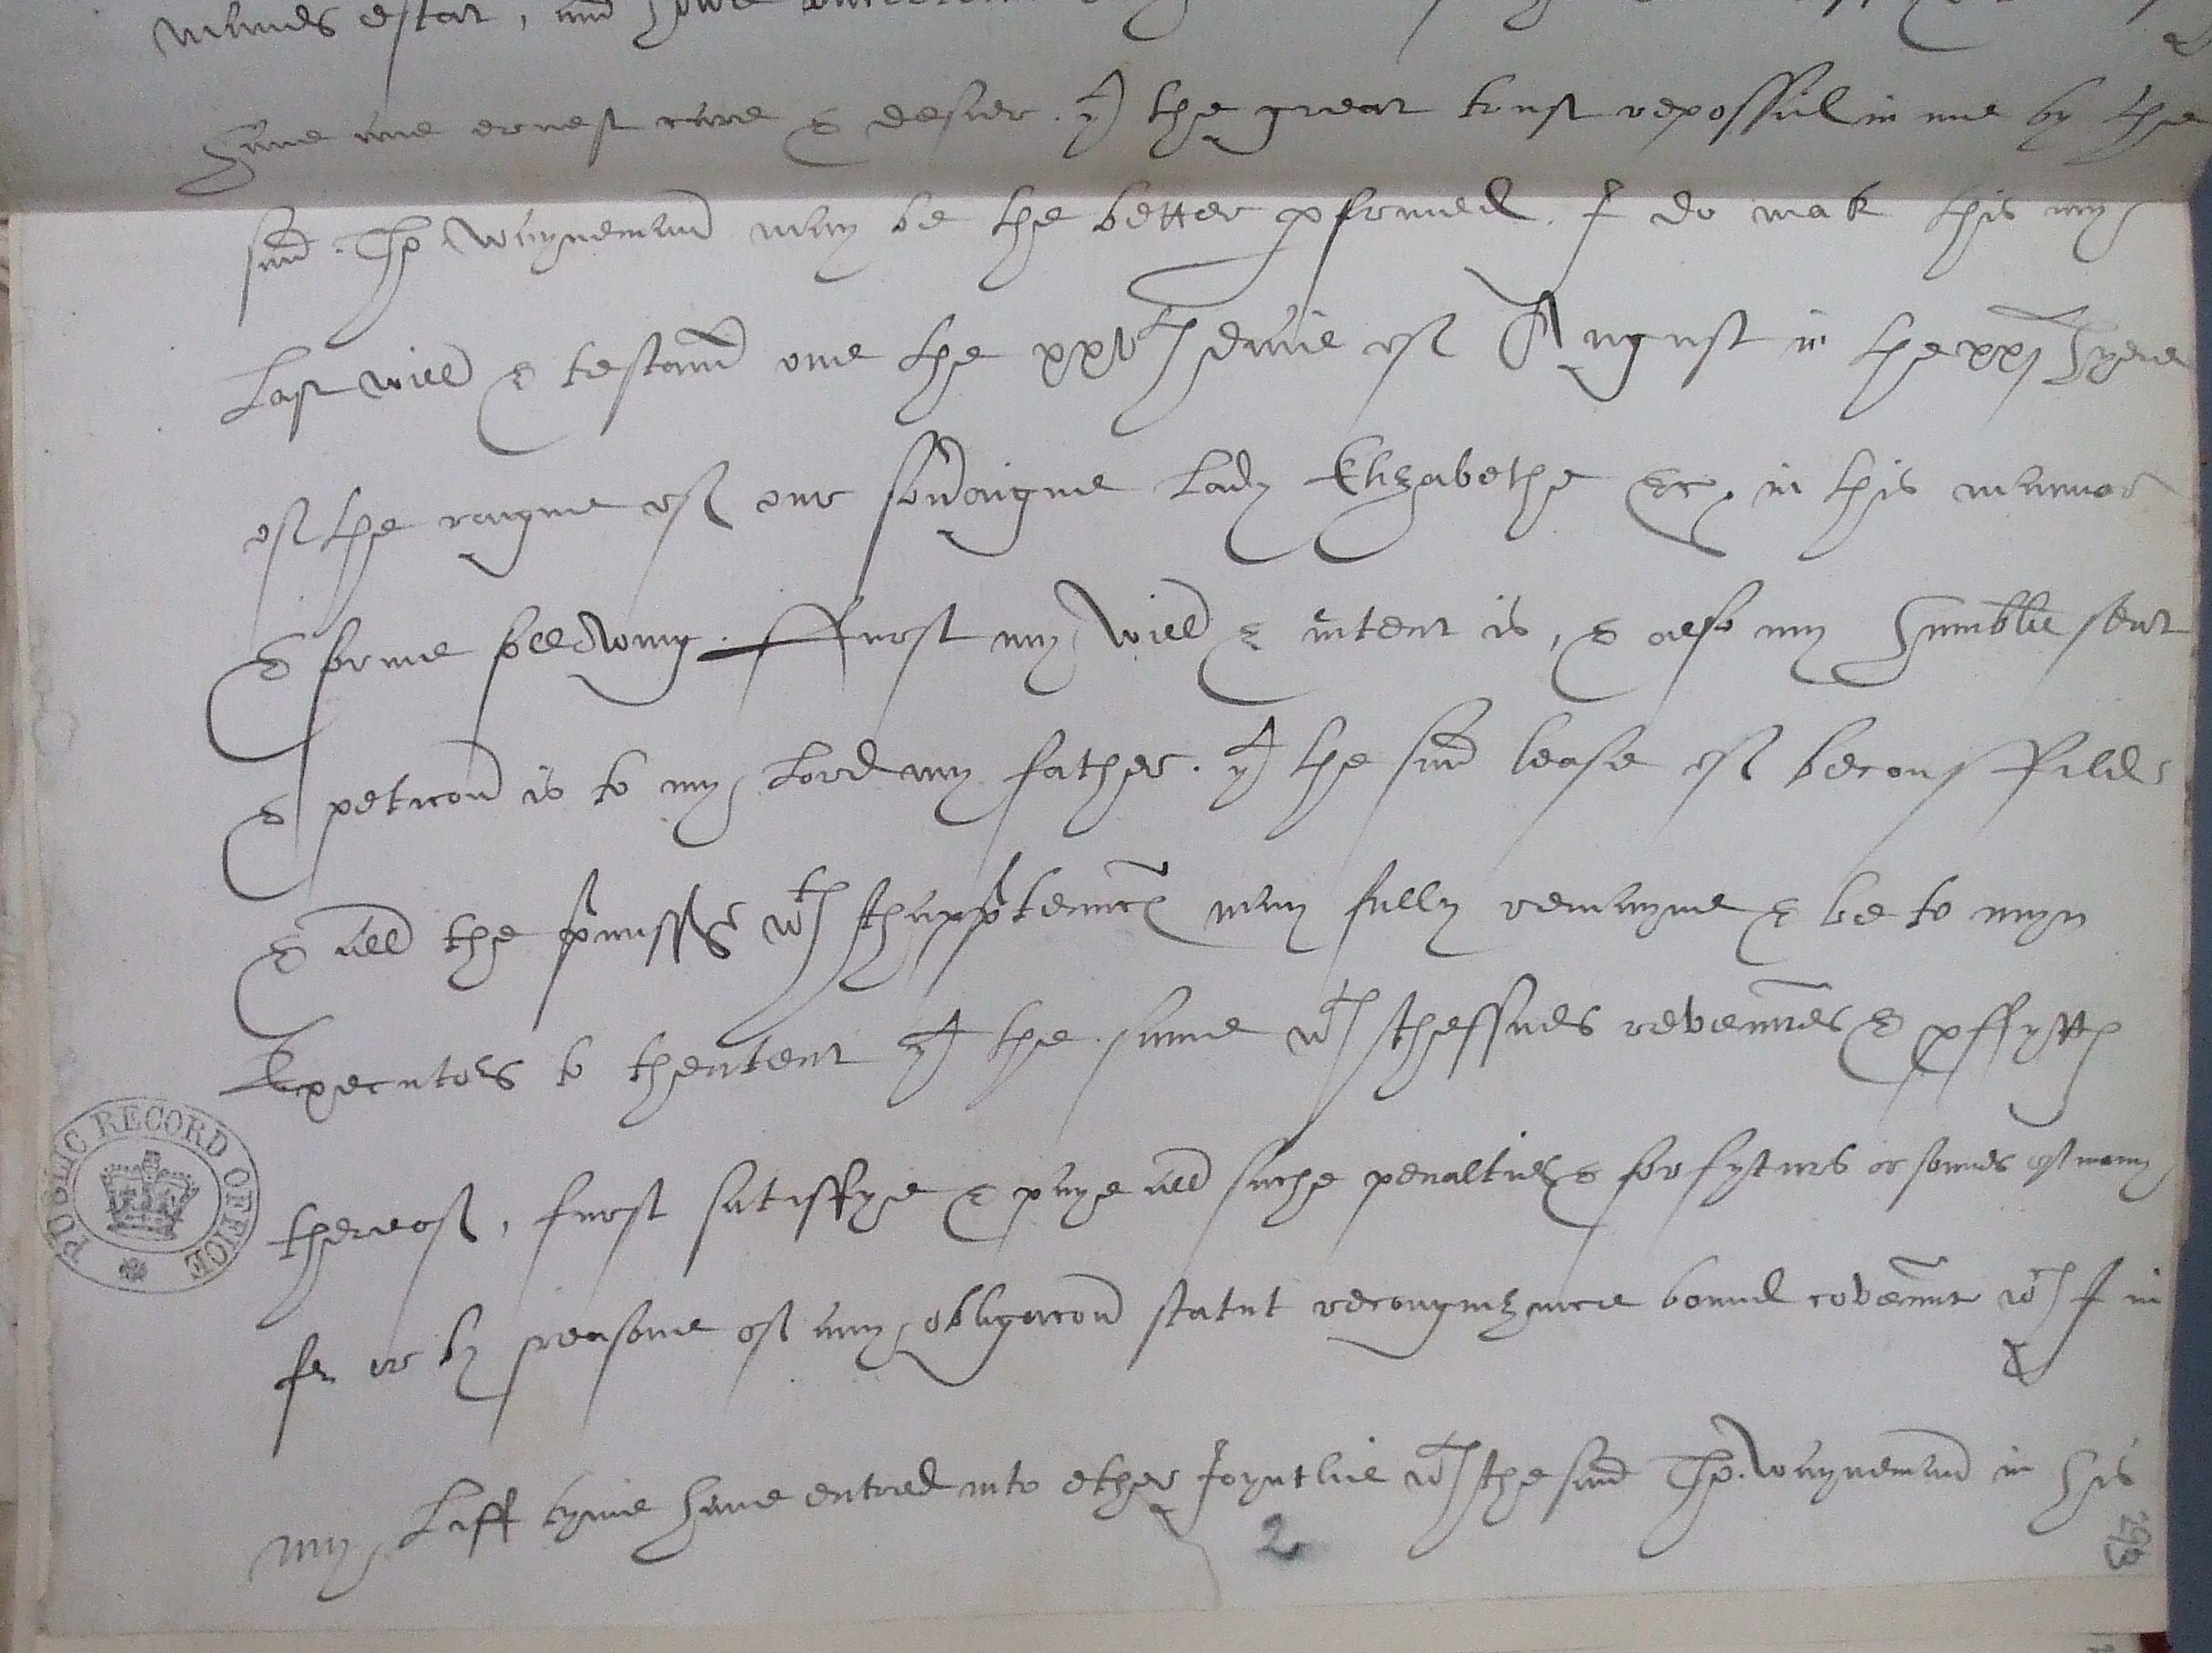 manes estat, and howe
Haue ane ernest care & desier. yt the great trust reposssid in me by the
said. Tho. Waynemand may be the better pformed. I do mak this my
Last will & testamt one the xxvth daie of August in the xxjth yere
of the raigne of our souaigne Lady Elizabethe &c. in this manner
& forme followinge. ffurst my will & intent is, & also my humble sewt
& peticon is to my Lord my father. yt the said lease of beconsffild
& all the pmisss wth thapptennces may fully remayne & be to myn
Executors to thentent yt the same wth thessues revennues & pffytts
thereof, furst satisffye & paye all suche penalties & forfyturs or somes of mony
for or by reasone of any obligacon statut recongnizance bonnd covennnt wch I in
my Liff tyme haue entred into ether Joyntlie wth the said Tho. Waynemand in his
PUBLIC RECORD OFFICE
2
293